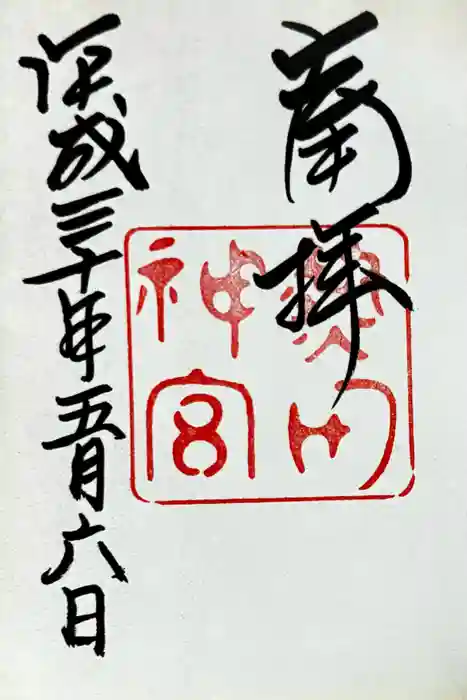 拝
神宮
平成三十年五月六日